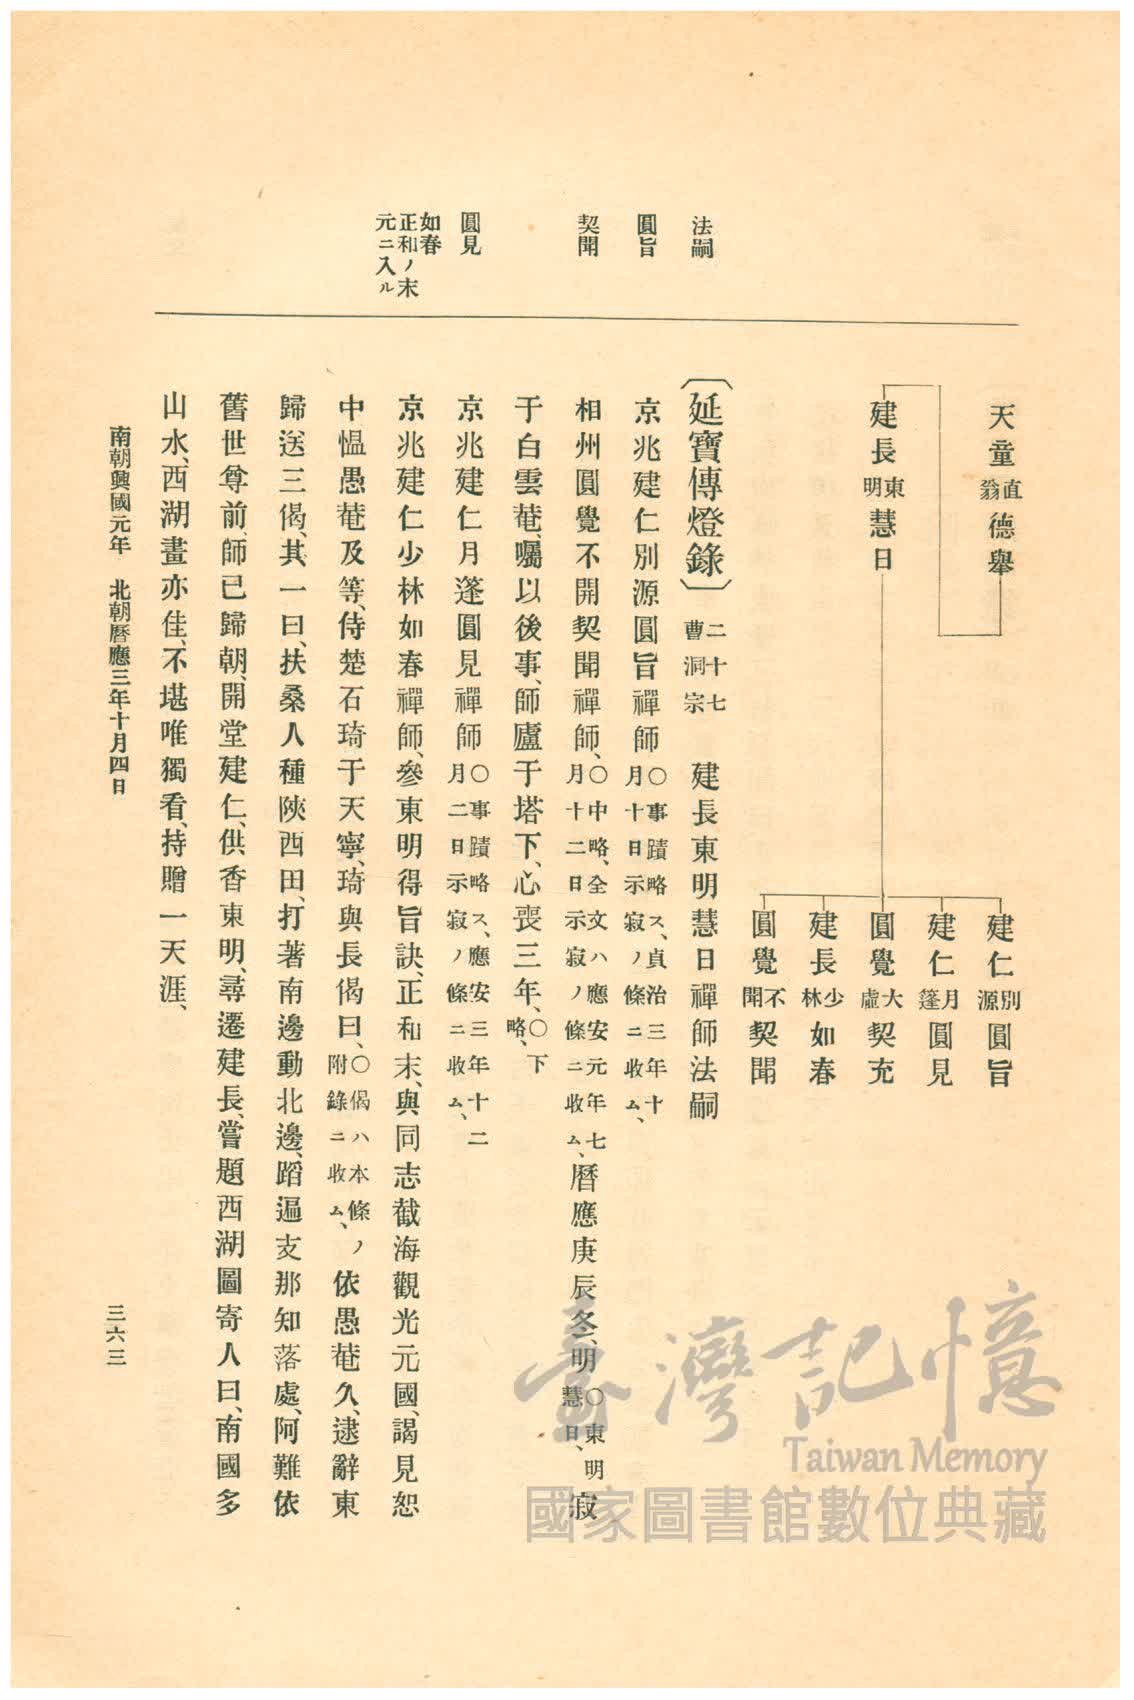 法嗣
圓旨
契聞
圓見
如春
正和ノ末
元ニ入ル
天童直翁德舉
建長東明慧日
建仁別源圓旨
建仁月篷圓見
圓覺大虛契充
建長少林如春
圓覺不聞契聞
〔延寶傳燈錄〕二十七曹洞宗 建長東明慧日禪師法嗣
京兆建仁別源圓旨禪師〇事蹟略ス、貞治三年十月十日示寂ノ條ニ收ム、
相州圓覺不開契聞禪師、〇中略、全文ハ應安元年七月十二日示寂ノ條ニ收ム、曆應庚辰冬、明〇東明慧日、寂
于白雲菴、囑以後事、師廬于塔下、心喪三年、〇下略、
京兆建仁月篷圓見禪師〇事蹟略ス、應安三年十二月二日示寂ノ條ニ收ム、
京兆建仁少林如春禪師、參東明得旨訣、正和末、與同志截海觀光元國、謁見恕
中愠愚菴及等、侍楚石琦于天寧、琦與長偈曰、〇偈ハ本條ノ附錄ニ收ム、依愚菴久、逮辭東
歸送三偈、其一曰、扶桑人種陝西田、打著南邊動北邊、蹈遍支那知落處、阿難依
舊世尊前、師已歸朝、開堂建仁、供香東明、尋遷建長、嘗題西湖圖寄人曰、南國多
山水、西湖畫亦佳、不堪唯獨看、持贈一天涯、
南朝興國元年 北朝曆應三年十月四日
三六三
臺灣記憶
Taiwan Memory
國家圖書館數位典藏